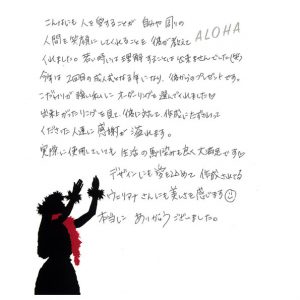 こんなにも 人を愛することが 自分や 周りの
人間を 笑顔に してくれることを 彼が教えて
ALOHA
くれました。若い時には 理解 することは 出来ませんでした(笑)
今年は 2回目の成人式となる年になり、彼からのプレゼントです。
こだわりが 強い私に オーダーリングを 選んでくれました
出来上がったリングを見て 彼に対して、作成に たずさわって
くださった人達に 感謝が 溢れます。
実際に使用していても 生活の 馴染みも良く 大満足です
デザインにも 愛を込めて 作成されてる
さんにも 美しさを感じます
本当に ありがとう ございました。